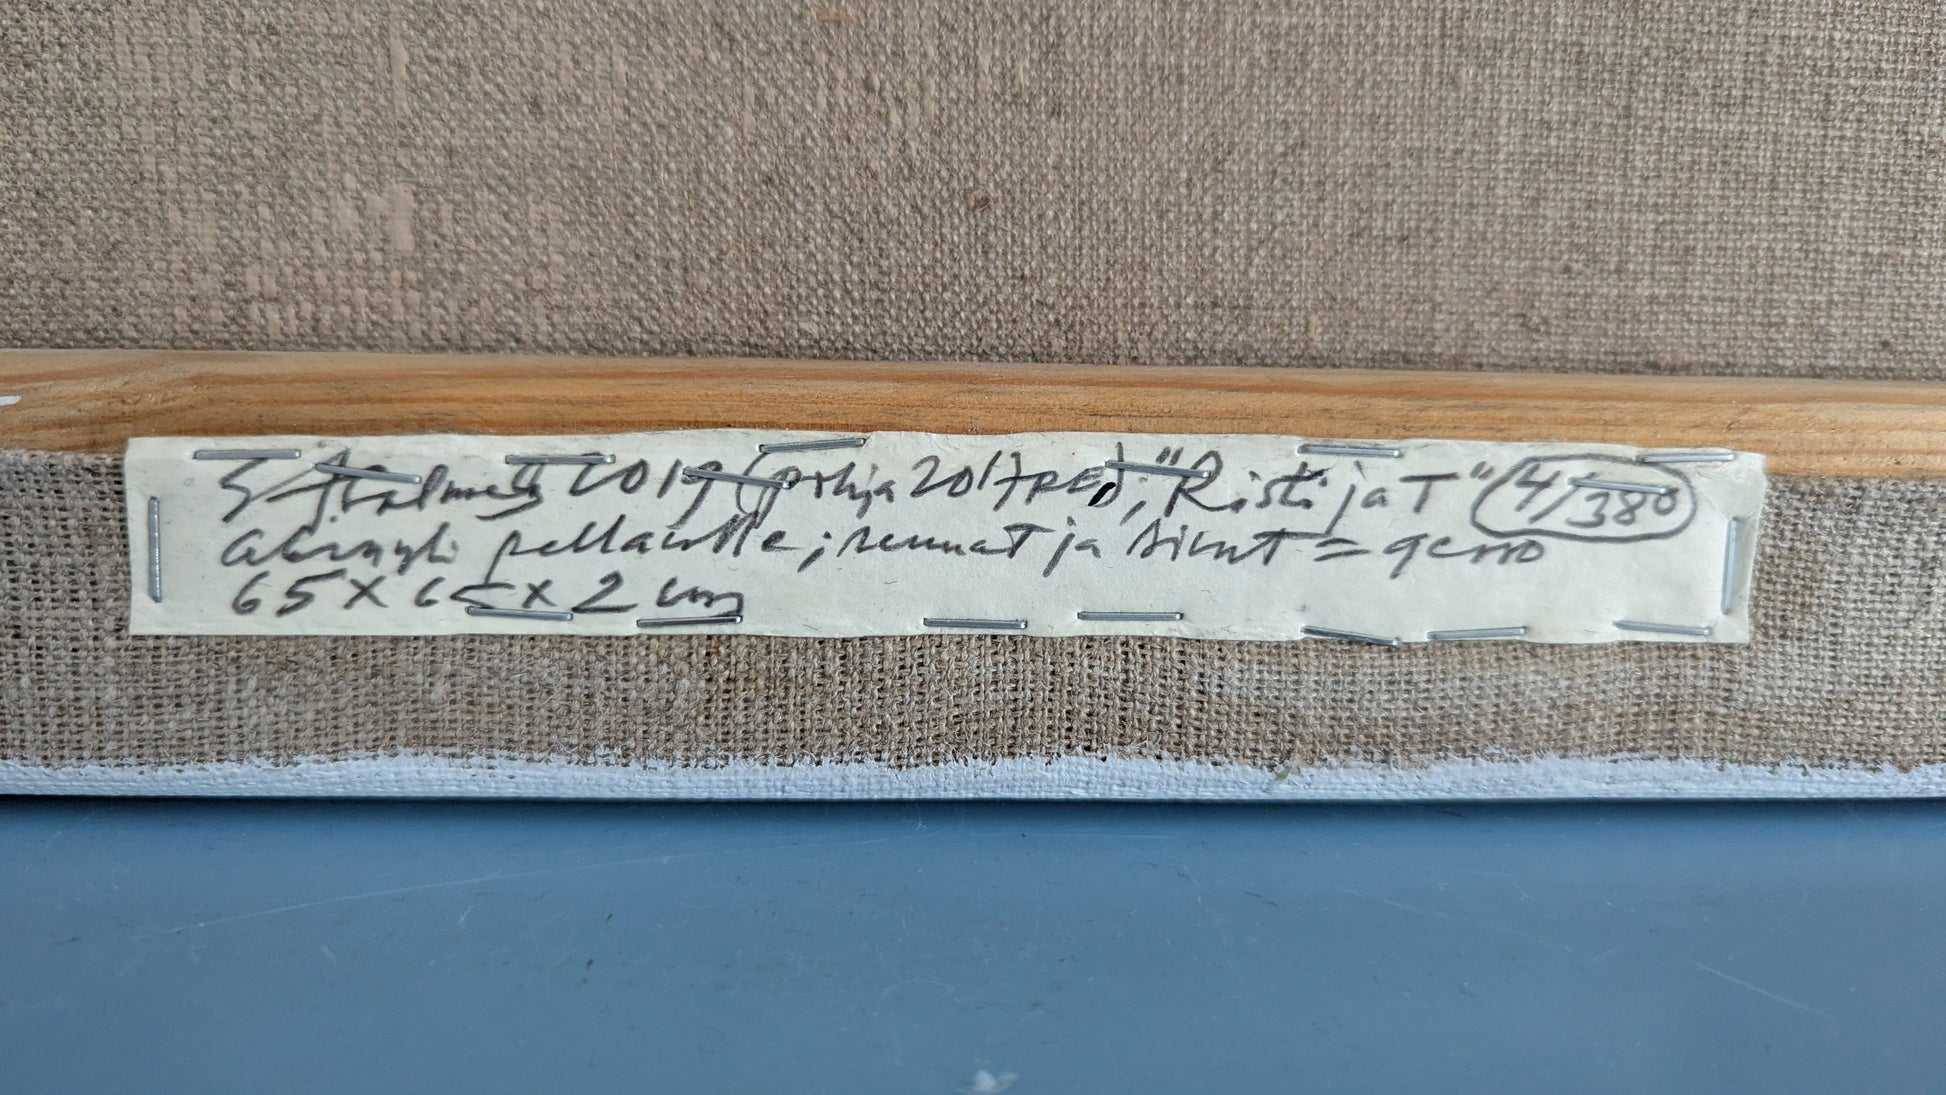 2019 (pohja 2017 RED); "Risti ja T" 4/380
akryyli pellavalle; reunat ja sivut = gesso
65 x 65 x 2 cm